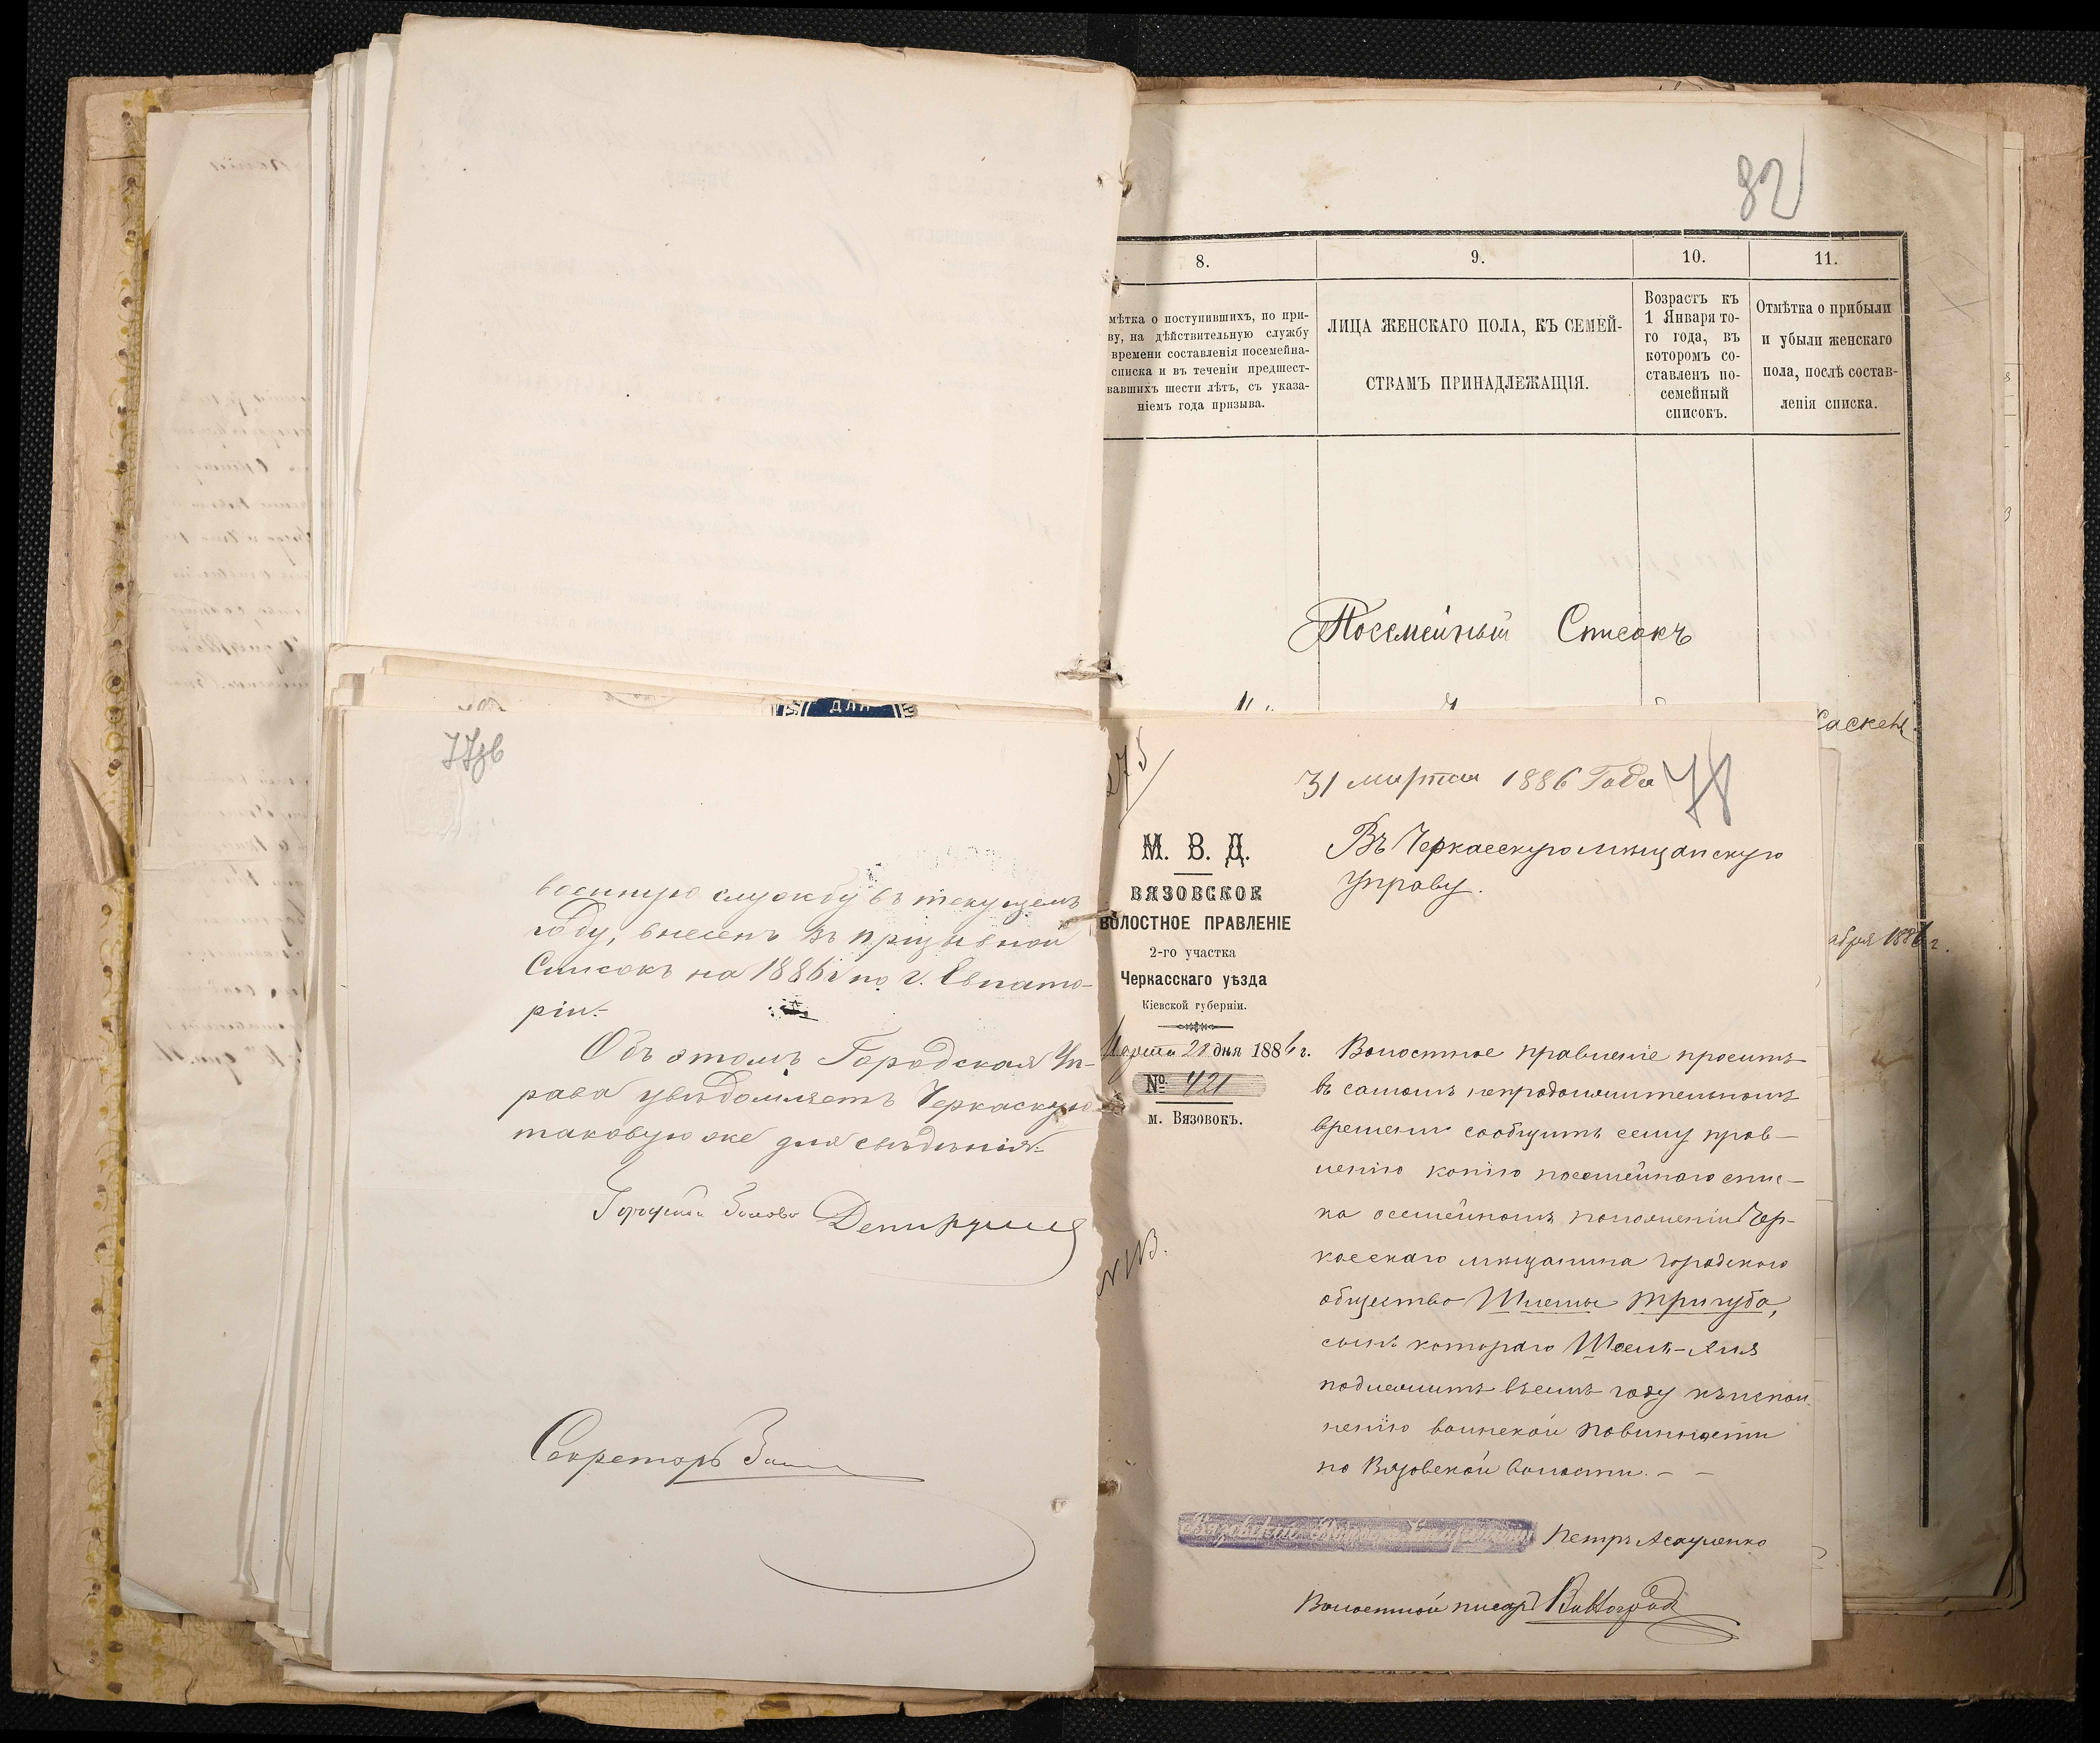 82
8.
9.
10.
11.
мѣтка о поступившихъ, по при-
ву, на дѣйствительную службу
времени составленія посемейна-
списка и въ теченіи предшест-
вавшихъ шести лѣтъ, съ указа-
ніемъ года призыва.
ЛИЦА ЖЕНСКАГО ПОЛА, КЪ СЕМЕЙ-
СТВАМЪ ПРИНАДЛЕЖАЩІЯ.
Возрастъ къ
1 Января то-
го года, въ
которомъ со-
ставленъ по-
семейный
списокъ.
Отмѣтка о прибыли
и убыли женскаго
пола, послѣ состав-
ленія списка.
Посемейный Списокъ
абря 1886 г.
77об
военную службу въ текущемъ
году, внесенъ въ призывной
Списокъ на 1886 г. по г. Евпато-
ріи.
Объ этомъ Городская Уп-
рава увѣдомляетъ Черкаскую
таковую же для свѣдѣнія.
Городской Голова
Секретарь
275
31 марта 1886 Года
78
М. В. Д.
ВЯЗОВСКОЕ
ВОЛОСТНОЕ ПРАВЛЕНІЕ
2-го участка
Черкасскаго уѣзда
Кіевской губерніи.
Марта 28 дня 1886 г.
№ 421
м. Вязовокъ.
Въ Черкасскую мѣщанскую
управу.
Волостное правленіе проситъ
въ самомъ непродолжительномъ
времени сообщить сему прав-
ленію копію посемейнаго спис-
ка о семейномъ положеніи Чер-
касскаго мѣщанина городского
общество Шлемы Тригуба,
сынъ котораго
подлежитъ въ семъ году къ испол-
ненію воинской повинности
по Вязовской волости. - -
Петръ Асауленко
Волостной писарь